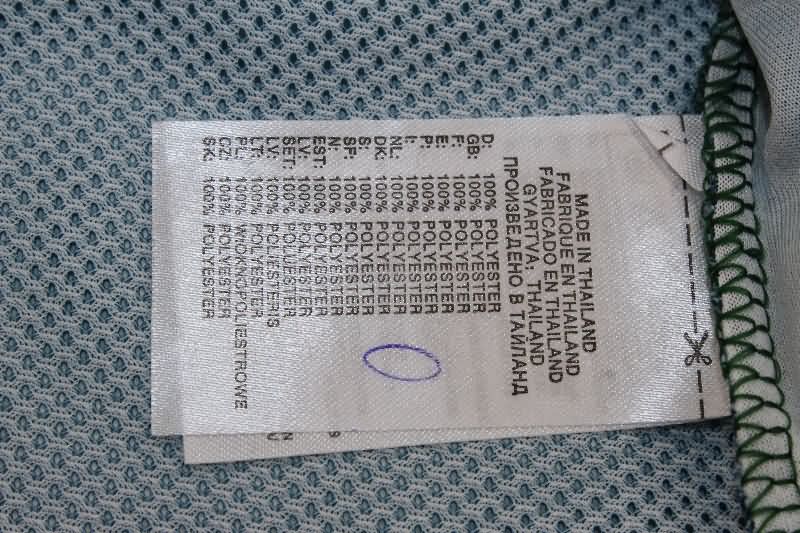 MADE IN THAILAND
FABRIQUE EN THAILAND
FABRICADO EN THAILAND
GYARTVA: THAILAND
ПРОИЗВЕДЕНО В ТАЙЛАНД
D: 100% POLYESTER
GB: 100% POLYESTER
F: 100% POLYESTER
E: 100% POLYESTER
P: 100% POLYESTER
I: 100% POLYESTER
NL: 100% POLYESTER
DK: 100% POLYESTER
S: 100% POLYESTER
SF: 100% POLYESTER
N: 100% POLYESTER
EST: 100% POLYESTER
LV: 100% POLYESTER
SET: 100% POLUESTER
LV: 100% POLYESTERIS
LT: 100% POLYESTER
PL: 100% WIOKNOPOLIESTROWE
CZ: 100% POLYESTER
SK: 100% POLYESTER